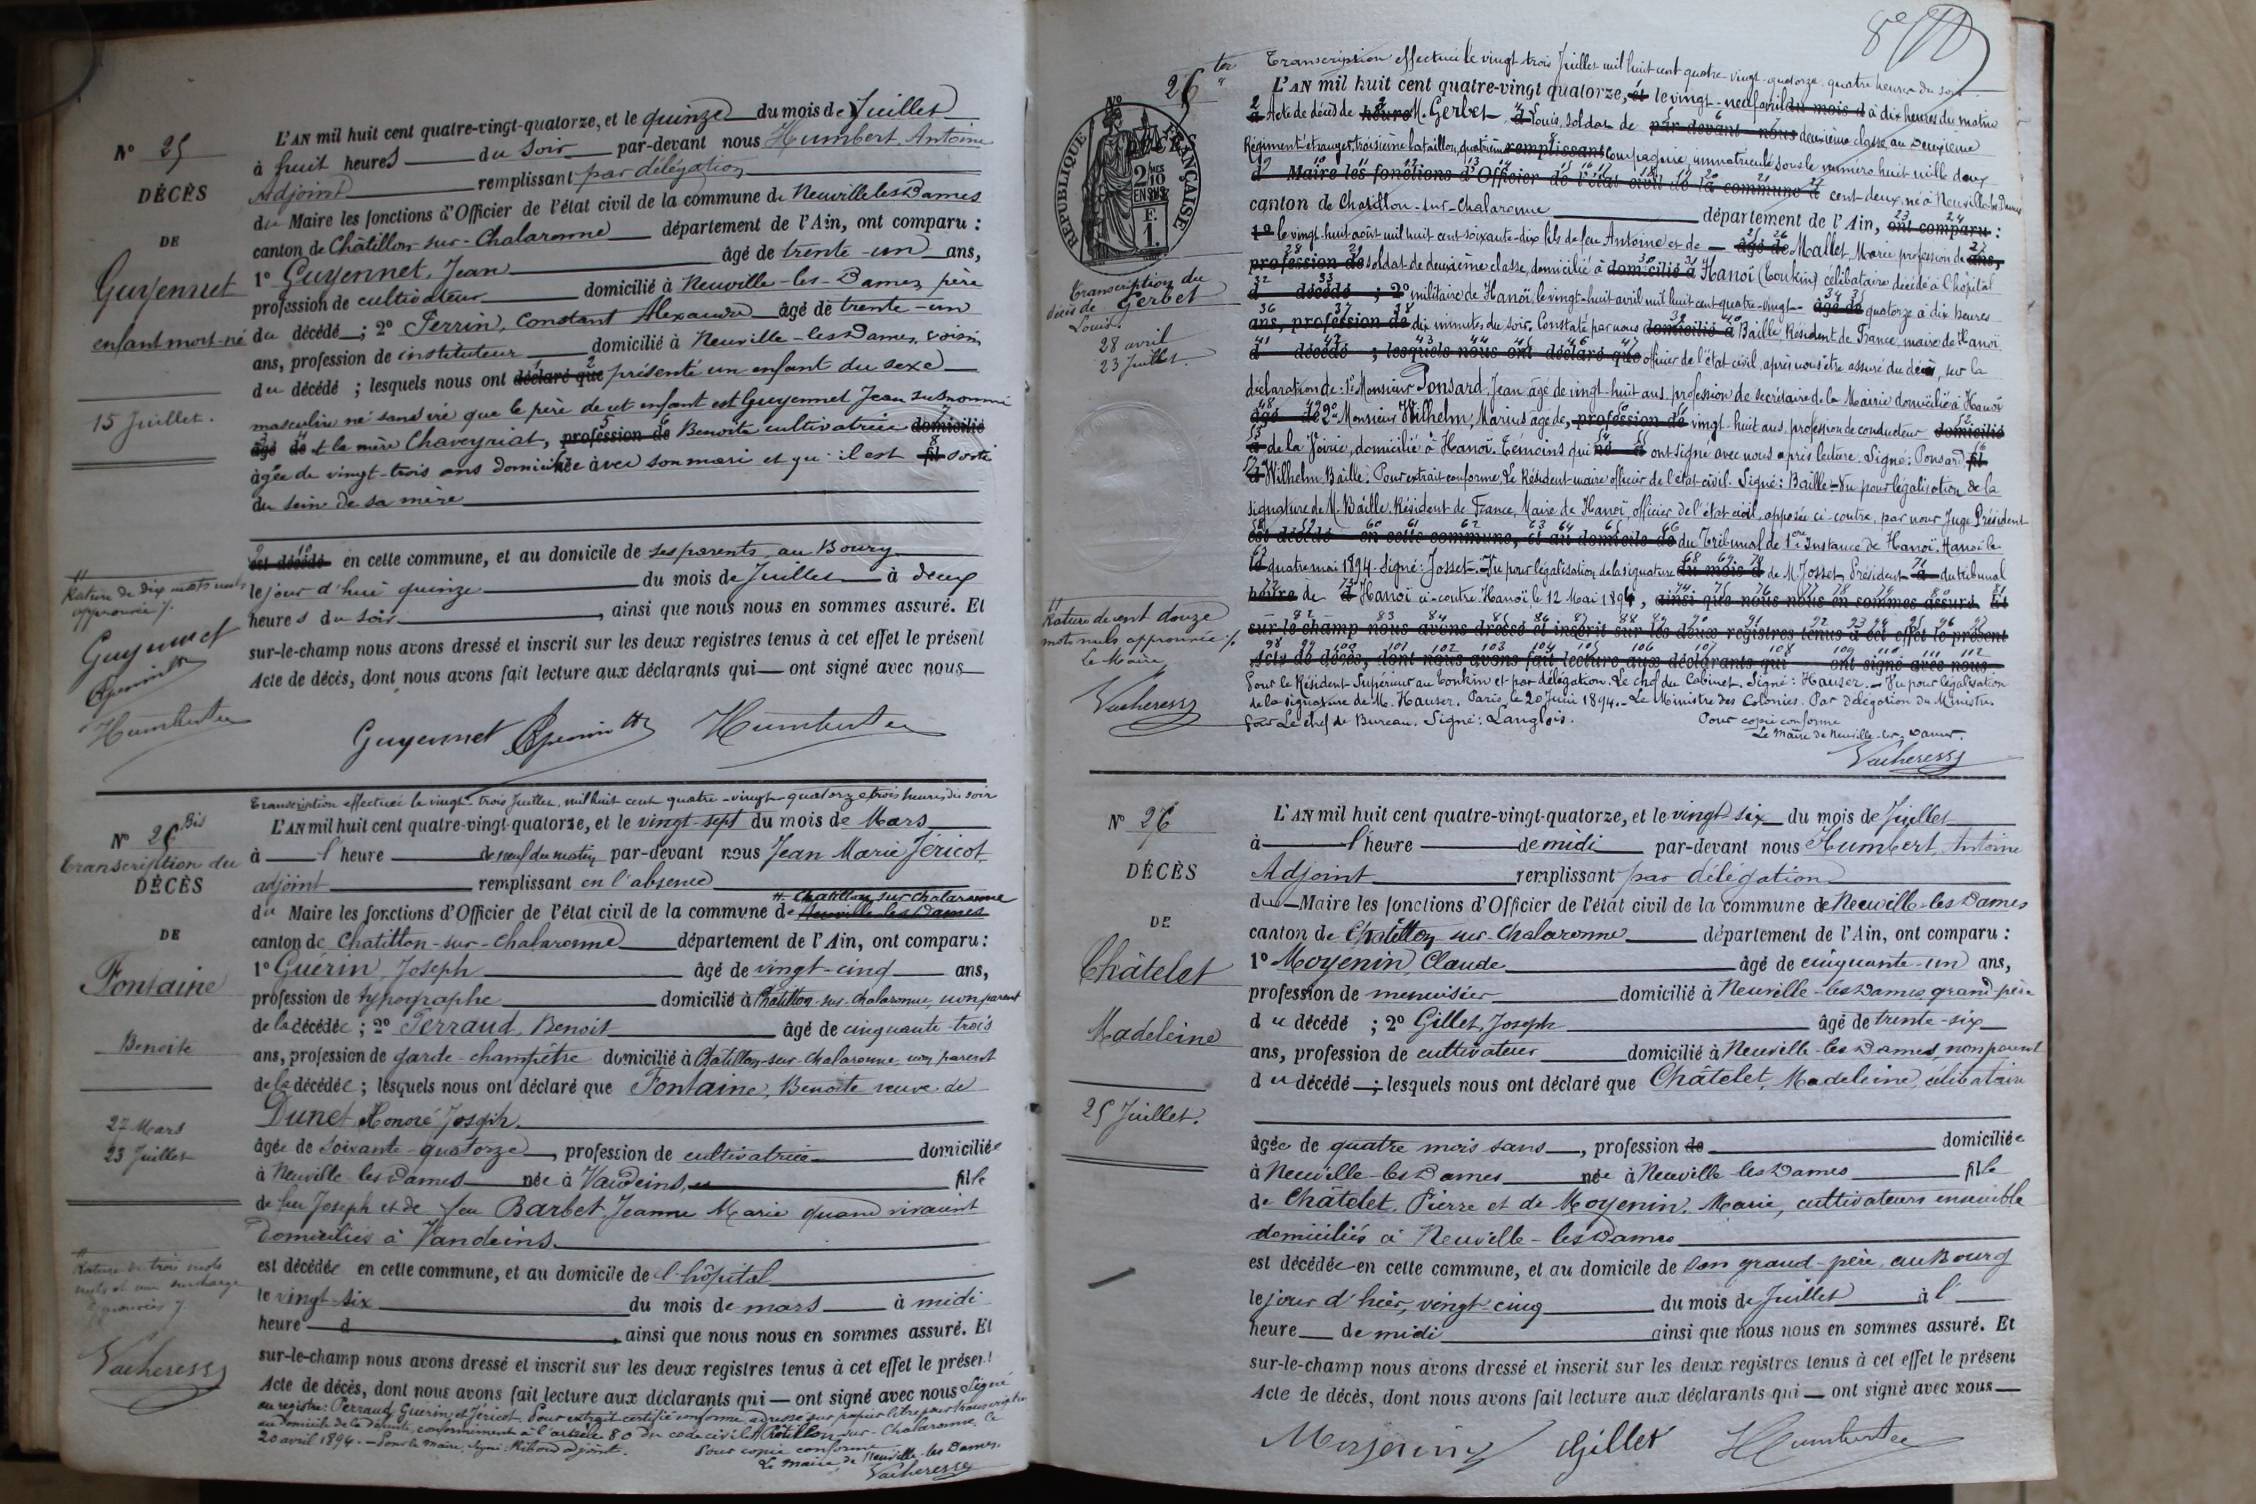 N° 25
DÉCÈS
DE
Guyennet
enfant mort-né
15 Juillet.
L'AN mil huit cent quatre-vingt-quatorze, et le quinze du mois de Juillet
à huit heures du soir par-devant nous Humbert, Antoine
Adjoint remplissant par délégation
du Maire les fonctions d'Officier de l'état civil de la commune de Neuville les Dames
canton de Châtillon-sur-Chalaronne département de l'Ain, ont comparu :
1° Guyennet, Jean âgé de trente-un ans,
profession de cultivateur domicilié à Neuville-les-Dames, père
du décédé ; 2° Perrin, Constant Alexandre âgé de trente-un
ans, profession de instituteur domicilié à Neuville-les Dames, voisin
du décédé ; lesquels nous ont déclaré que présenté un enfant du sexe
masculin né sans vie que le père de cet enfant est Guyennet Jean susnommé
âgé de et la mère Chaveyriat, profession de Benoîte cultivatrice domicilié
âgée de vingt-trois ans domiciliée avec son mari et qu'il est fil sorti
du sein de sa mère
est décédé en cette commune, et au domicile de ses parents, au Bourg
le jour d'hui quinze du mois de Juillet à deux
heures du soir, ainsi que nous nous en sommes assuré. Et
sur-le-champ nous avons dressé et inscrit sur les deux registres tenus à cet effet le présent
Acte de décès, dont nous avons fait lecture aux déclarants qui — ont signé avec nous
Rature de dix mots nuls
approuvée
Guyennet
Humbert
Guyennet Humbert
N° 26 Bis
Transcription du
DÉCÈS
DE
Fontaine
Benoite
27 Mars
23 Juillet
Transcription effectuée le vingt-trois Juillet, mil huit cent quatre-vingt-quatorze, trois heures du soir
L'AN mil huit cent quatre-vingt-quatorze, et le vingt-sept du mois de Mars
à l'heure de neuf du matin par-devant nous Jean Marie Jéricot
adjoint remplissant en l'absence
Chatillon sur Chalaronne
du Maire les fonctions d'Officier de l'état civil de la commune de Neuville les Dames
canton de Chatillon-sur-Chalaronne département de l'Ain, ont comparu :
1° Guérin, Joseph âgé de vingt-cinq ans,
profession de typographe domicilié à Châtillon-sur-Chalaronne, non parent
de la décédée ; 2° Perraud, Benoit âgé de cinquante-trois
ans, profession de garde-champêtre domicilié à Châtillon-sur-Chalaronne, non parent
de la décédée ; lesquels nous ont déclaré que Fontaine, Benoite veuve de
Dunet, Honoré Joseph.
âgée de soixante-quatorze, profession de cultivatrice domiciliée
à Neuville les Dames née à Vandeins, fille
de feu Joseph et de feu Barbet Jeanne Marie quand vivaient
domiciliés à Vandeins.
est décédée en cette commune, et au domicile de l'hôpital
le vingt-six du mois de mars à midi
heure d , ainsi que nous nous en sommes assuré. Et
sur-le-champ nous avons dressé et inscrit sur les deux registres tenus à cet effet le présent
Acte de décès, dont nous avons fait lecture aux déclarants qui — ont signé avec nous Signé
au registre : Perraud, Guérin, et Jéricot. Pour extrait certifié conforme, adressé sur papier libre pour transcription
au domicile de la défunte, conformément à l'article 80 du code civil. Châtillon-sur-Chalaronne, le
20 avril 1894. — Pour le maire, signé : Ribaud adjoint.
Pour copie conforme
Le maire de Neuville-les Dames.
Vacheress
Rature de trois mots
nuls et une surcharge
Vacheress
26 ter
8e
RÉPUBLIQUE FRANÇAISE
2 10 EN SUS
F. 1.
Transcription du
décès de Gerbet
Louis.
28 avril
23 Juillet.
Transcription effectuée le vingt trois Juillet mil huit cent quatre-vingt-quatorze. quatre heures du soir
L'AN mil huit cent quatre-vingt quatorze, et le vingt-neuf avril du mois d à dix heures du matin
à Acte de décès de heure M. Gerbet, d Louis, soldat de par-devant nous deuxième classe au Deuxième
Régiment étranger, troisième bataillon, quatrième remplissant compagnie, immatriculé sous le numéro huit mille deux
d Maire les fonctions d'Officier de l'état civil de la commune d cent-deux, né à Neuville-les-Dames
canton de Chatillon-sur-Chalaronne département de l'Ain, ont comparu :
1° le vingt-huit août mil huit cent soixante-dix fils de feu Antoine et de — âgé de Mallet, Marie profession de ans,
profession de soldat de deuxième classe, domicilié à domicilié à Hanoï (Tonkin) célibataire décédé à l'hôpital
d décédé ; 2° militaire de Hanoï, le vingt-huit avril mil huit cent quatre-vingt- âgé de quatorze à dix heures
ans, profession de dix minutes du soir. Constaté par nous domicilié à Baille, Résident de France, maire de Hanoï
d décédé ; lesquels nous ont déclaré que officier de l'état civil, après nous être assuré du décès, sur la
déclaration de : 1° Monsieur Ponsard, Jean, âgé de vingt-huit ans, profession de secrétaire de la Mairie domicilié à Hanoï
âgé de 2° Monsieur Wilhelm, Marius âgé de, profession de vingt-huit ans, profession de conducteur domicilié
à de la Voirie, domicilié à Hanoï. Témoins qui né à ont signé avec nous après lecture. Signé : Ponsard, fil
d Wilhelm. Baille. Pour extrait conforme, Le Résident-maire officier de l'état civil. Signé : Baille — Vu pour légalisation de la
signature de M. Baille, Résident de France, Maire de Hanoï, officier de l'état civil, apposée ci-contre, par nous Juge Président
est décédé en cette commune, et au domicile de du Tribunal de 1ère Instance de Hanoï. Hanoï le
le quatre mai 1894. Signé : Josset. — Vu pour légalisation de la signature du mois d de M. Josset, Président à du tribunal
heure de d Hanoï ci-contre. Hanoï, le 12 Mai 1894, ainsi que nous nous en sommes assuré. Et
sur-le-champ nous avons dressé et inscrit sur les deux registres tenus à cet effet le présent
Acte de décès, dont nous avons fait lecture aux déclarants qui ont signé avec nous
Pour le Résident Supérieur au Tonkin et par délégation. Le chef du Cabinet. Signé : Hauser. — Vu pour légalisation
de la signature de M. Hauser. Paris, le 20 Juin 1894. — Le Ministre des Colonies. Par Délégation du Ministre
Pour Le chef de Bureau. Signé : Langlois.
Pour copie conforme
Le Maire de Neuville-les-Dames.
Vacheress
Rature de cent douze
mots nuls approuvée
Le Maire
Vacheress
N° 26
DÉCÈS
DE
Châtelet
Madeleine
25 Juillet.
L'AN mil huit cent quatre-vingt-quatorze, et le vingt six du mois de Juillet
à l'heure de midi par-devant nous Humbert, Antoine
Adjoint remplissant par délégation
du Maire les fonctions d'Officier de l'état civil de la commune de Neuville-les Dames
canton de Châtillon sur-Chalaronne département de l'Ain, ont comparu :
1° Moyenin, Claude âgé de cinquante-un ans,
profession de menuisier domicilié à Neuville-les Dames, grand-père
du décédé ; 2° Gillet, Joseph âgé de trente-six
ans, profession de cultivateur domicilié à Neuville-les Dames, non parent
du décédé ; lesquels nous ont déclaré que Châtelet, Madeleine, célibataire
âgée de quatre mois sans, profession de domiciliée
à Neuville-les Dames née à Neuville les Dames fille
de Châtelet, Pierre et de Moyenin, Marie, cultivateurs ensemble
domiciliés à Neuville-les Dames
est décédée en cette commune, et au domicile de son grand-père, au Bourg
le jour d'hier, vingt cinq du mois de Juillet à l'
heure de midi ainsi que nous nous en sommes assuré. Et
sur-le-champ nous avons dressé et inscrit sur les deux registres tenus à cet effet le présent
Acte de décès, dont nous avons fait lecture aux déclarants qui — ont signé avec nous —
Moyenin Gillet Humbert